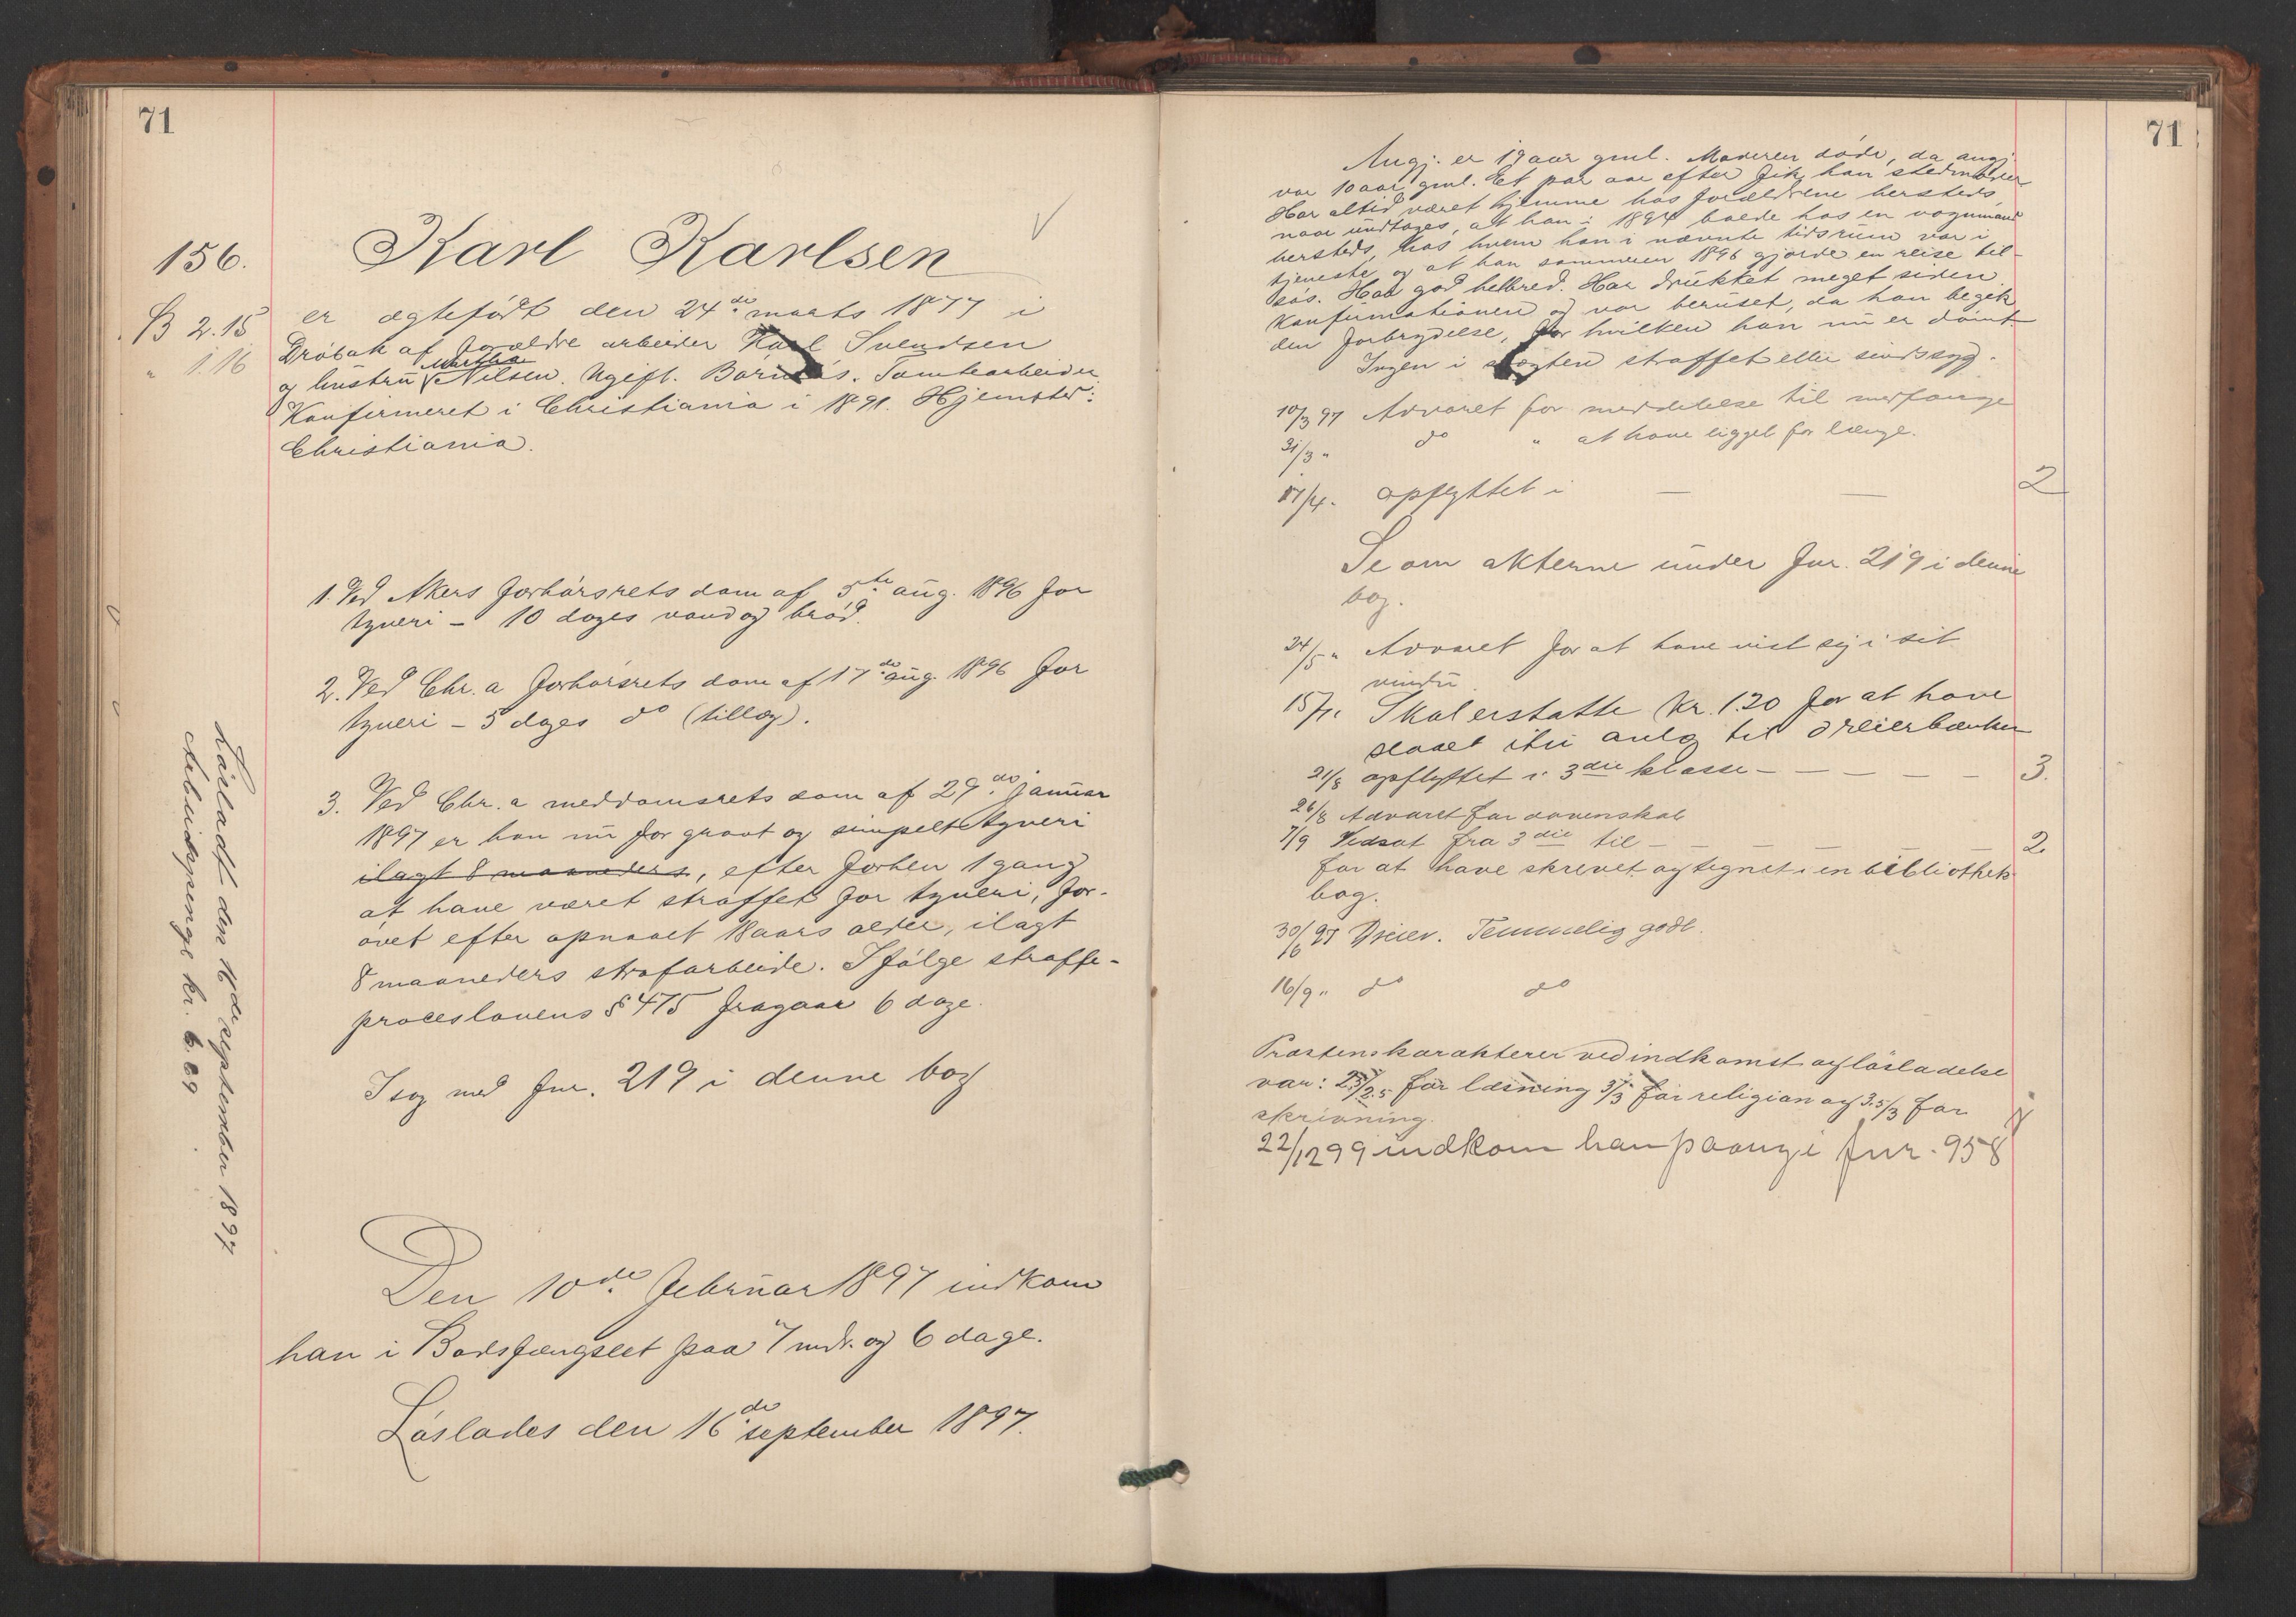 71
156.
Karl Karlsen
B 2.15
" 1.16
er ægtefødt den 24de marts 1877 i
Drøbak af forældre arbeider Karl Svendsen
og hustru Martha Nilsen. Ugift. Barnløs. Tomtearbeider.
Konfirmeret i Christiania i 1891. Hjemsted:
Christiania.
1. Ved Akers forhørsrets dom af 5te aug. 1896 for
tyveri – 10 dages vand og brød.
2. Ved Chr.a forhørsrets dom af 17de aug. 1896 for
tyveri – 5 dages do (tillæg).
3. Ved Chr.a meddomsrets dom af 29de januar
1897 er han nu for grovt og simpelt tyveri
ilagt 8 maaneders, efter forhen 1 gang
at have været straffet for tyveri, for-
øvet efter opnaaet 18 aars alder, ilagt
8 maaneders strafarbeide. Ifølge straffe-
proceslovens § 475 fragaar 6 dage.
I sog med fnr. 219 i denne bog
Den 10de februar 1897 indkom
han i Bodsfængslet paa 7 mdr. og 6 dage.
Løslades den 16de september 1897.
Løsladt den 16de september 1897
Arbeidspenge kr. 6.69.
71
Angj. er 19 aar gml. Moderen døde, da angj.
var 10 aar gml. Et par aar efter fik han stedmoder
Har altid været hjemme hos forældrene hersteds,
naar undtages, at han i 1894 boede hos en vognmand
hersteds, hos hvem han i nævnte tidsrum var i
tjeneste og at han sommeren 1896 gjorde en reise til-
søs. Har god helbred. Har drukket meget siden
konfirmationen og var beruset, da han begik
den forbrydelse, for hvilken han nu er dømt.
Ingen i slægten straffet eller sindssyg.
10/3 97 Advaret for meddelelse til medfange
31/3 " do " at have ligget for længe.
17/4 " opflyttet i — — 2
Se om akterne under fnr. 219 i denne
bog.
24/5 " Advaret for at have vist sig i sit
vindu
15/7 " Skal erstatte kr. 1.20 for at have
slaaet itu anlæg til dreierbænken
21/8 opflyttet i 3die klasse – – – – – 3.
26/8 Advaret for dovenskab
7/9 Nedsat fra 3die til – – – – – 2.
for at have skrevet og tegnet i en bibliothek
bog.
30/6 97 Dreier. Temmelig godt.
16/9 " do do
Præstens karakterer ved indkomst og løsladelse
var: 2.5/2.5 for læsning 3/3 for religion og 3.5/3 for
skrivning.
22/12 99 indkom han paany i fnr. 958